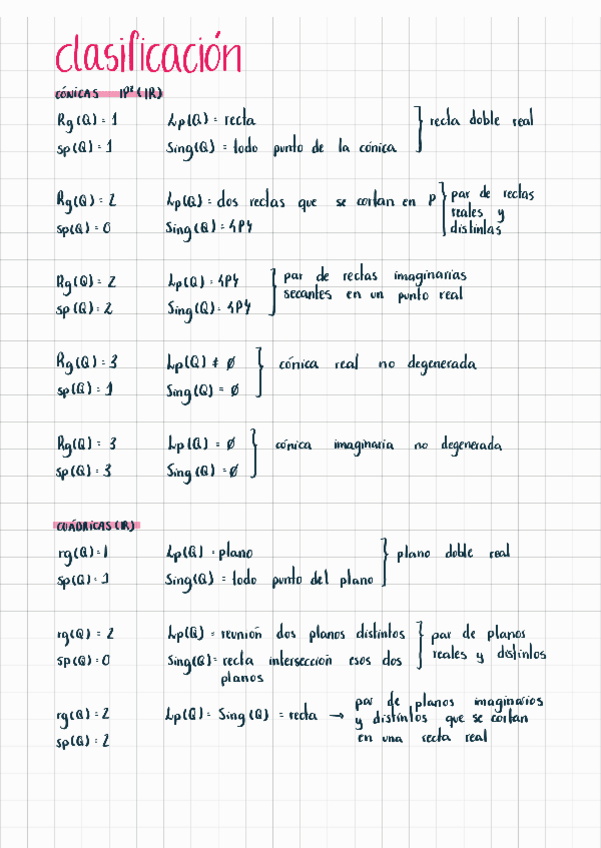 clasificación
CÓNICAS IP²(IR)
Rg(Q) = 1 Lp(Q) = recta } recta doble real
sp(Q) = 1 Sing(Q) = todo punto de la cónica
Rg(Q) = 2 Lp(Q) = dos rectas que se cortan en P } par de rectas
reales y
sp(Q) = 0 Sing(Q) = {P} distintas
Rg(Q) = 2 Lp(Q) = {P} } par de rectas imaginarias
sp(Q) = 2 Sing(Q) = {P} secantes en un punto real
Rg(Q) = 3 Lp(Q) ≠ ∅ } cónica real no degenerada
sp(Q) = 1 Sing(Q) = ∅
Rg(Q) = 3 Lp(Q) = ∅ } cónica imaginaria no degenerada
sp(Q) = 3 Sing(Q) = ∅
CUÁDRICAS (IR)
rg(Q) = 1 Lp(Q) = plano } plano doble real
sp(Q) = 1 Sing(Q) = todo punto del plano
rg(Q) = 2 Lp(Q) = reunión dos planos distintos } par de planos
sp(Q) = 0 Sing(Q) = recta intersección esos dos reales y distintos
planos
rg(Q) = 2 Lp(Q) = Sing(Q) = recta → par de planos imaginarios
y distintos que se cortan
sp(Q) = 2 en una recta real